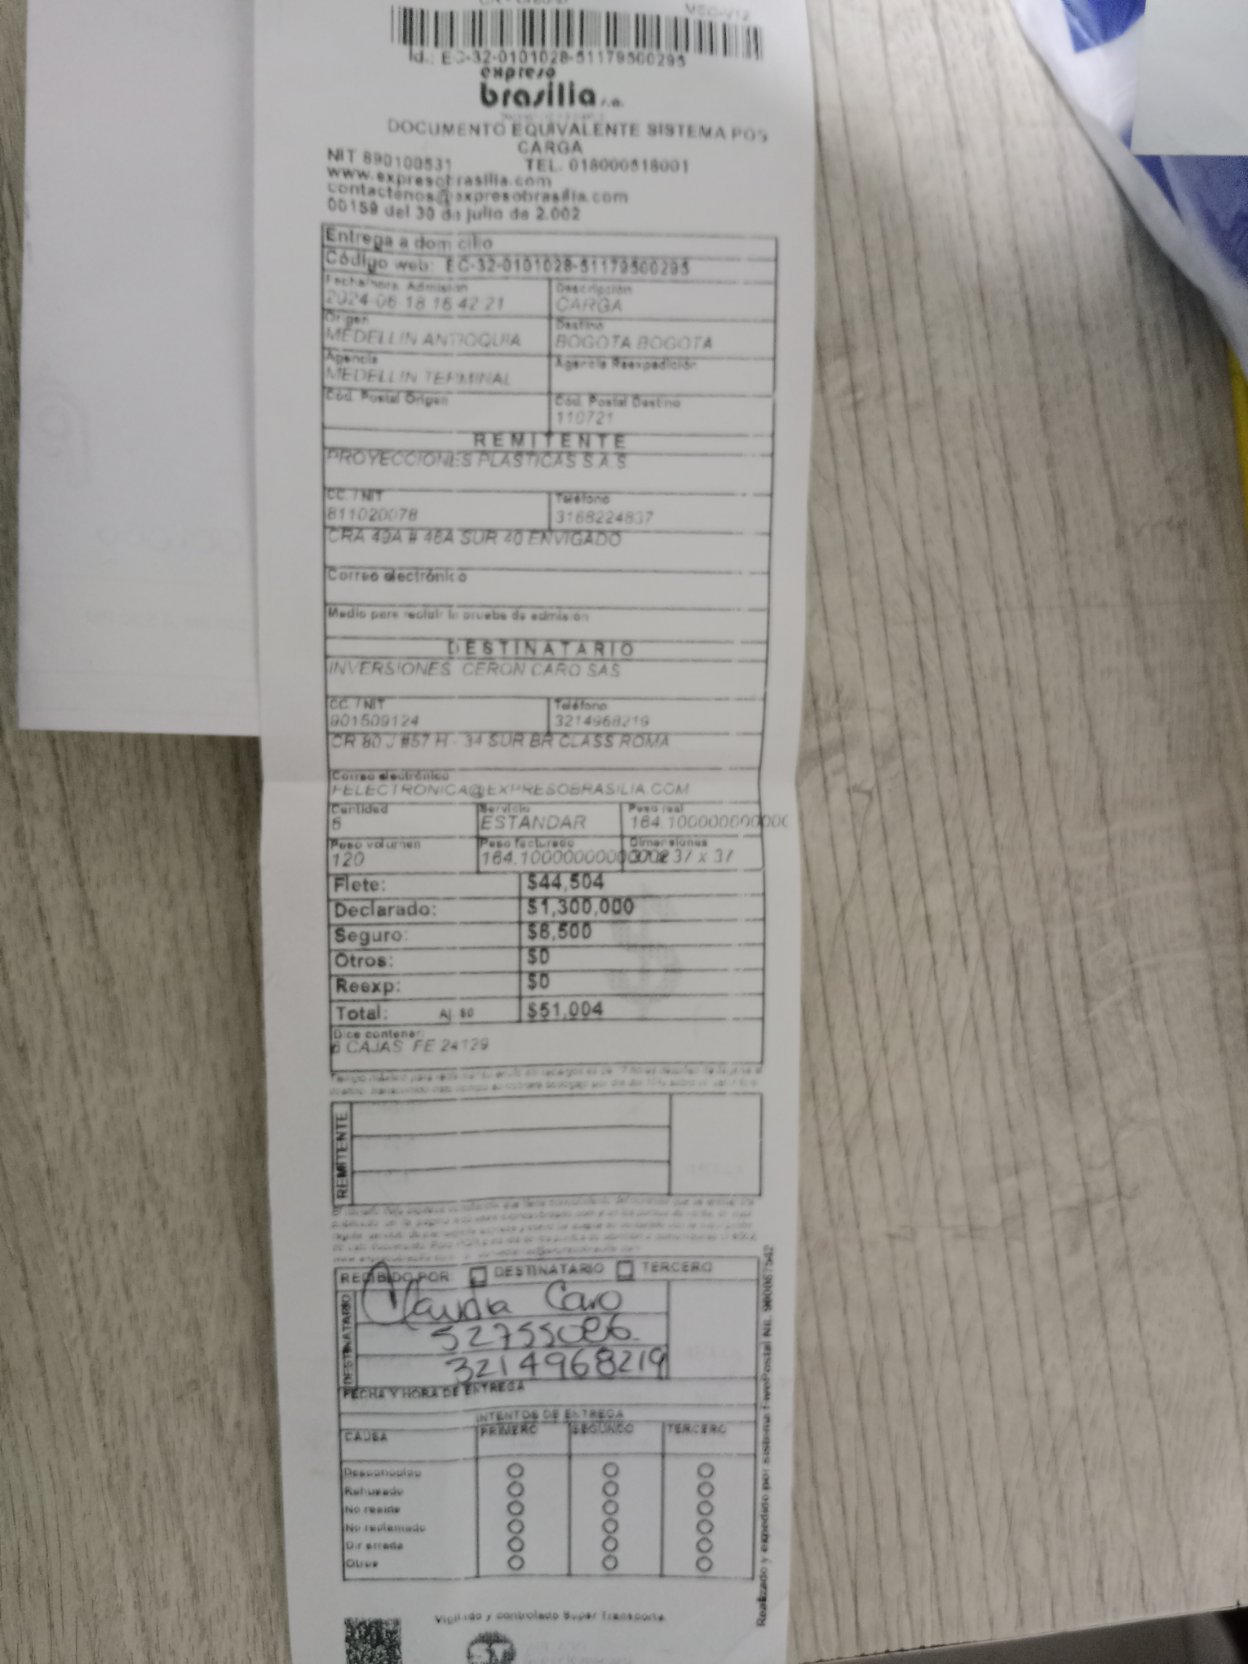 MEC-V12
Id.: EC-32-0101028-51179500295
expreso
brasilia s.a.
DOCUMENTO EQUIVALENTE SISTEMA POS
CARGA
NIT 890100531 TEL. 018000518001
www.expresobrasilia.com
contactenos@expresobrasilia.com
00159 del 30 de julio de 2.002
Entrega a domicilio
Código web: EC-32-0101028-51179500295
Fecha/hora Admisión Descripción
2024-06-18 16:42:21 CARGA
Origen Destino
MEDELLIN ANTIOQUIA BOGOTA BOGOTA
Agencia Agencia Reexpedición
MEDELLIN TERMINAL
Cód. Postal Origen Cód. Postal Destino
110721
REMITENTE
PROYECCIONES PLASTICAS S.A.S
CC. / NIT Teléfono
811020078 3168224837
CRA 49A # 46A SUR 40 ENVIGADO
Correo electrónico
Medio para recibir la prueba de admisión
DESTINATARIO
INVERSIONES CERON CARO SAS
CC. / NIT Teléfono
901509124 3214968219
CR 80 J #57 H - 34 SUR BR CLASS ROMA
Correo electrónico
FELECTRONICA@EXPRESOBRASILIA.COM
Cantidad Servicio Peso real
6 ESTANDAR 164.10000000000
Peso volumen Peso facturado Dimensiones
120 164.1000000000 x 37 x 37
Flete: $44,504
Declarado: $1,300,000
Seguro: $6,500
Otros: $0
Reexp: $0
Total: Aj. $0 $51,004
Dice contener:
6 CAJAS FE 24129
REMITENTE
RECIBIDO POR: DESTINATARIO TERCERO
DESTINATARIO
Claudia Caro
52755086
3214968219
FECHA Y HORA DE ENTREGA
INTENTOS DE ENTREGA
CAUSA PRIMERO SEGUNDO TERCERO
Desconocido
Rehusado
No reside
No reclamado
Dir errada
Otros
Realizado y expedido por sistema
Vigilado y controlado Super Transporte